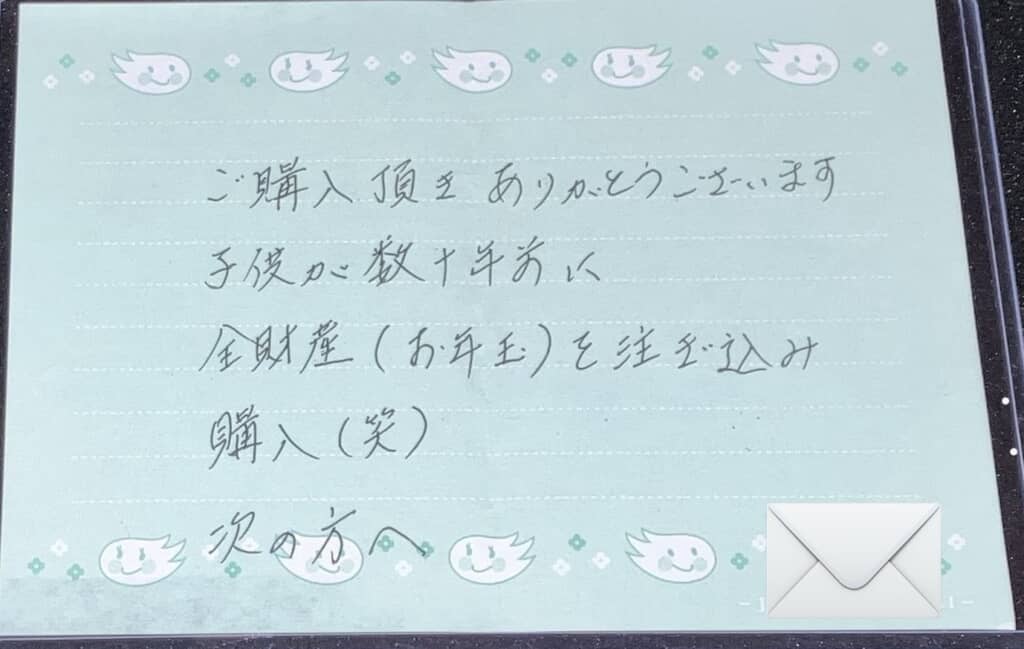 ご購入頂きありがとうございます
子供が数十年前に
全財産(お年玉)を注ぎ込み
購入(笑)
次の方へ